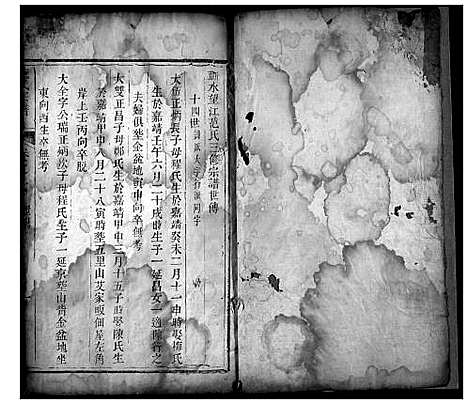 蘄水望江范氏三修宗譜世傳
十四世
大 正炳長子母程氏生於嘉靖癸未二月十一申時娶梅氏
生於嘉靖壬午六月二十戌時生子一延昌女一適陳
夫婦俱塟金盆地 申向卒無考
大雙正昌子母鄭氏生於嘉靖甲申三月十五子時娶陳氏生
於嘉靖甲申八月二十八寅時塟五里山艾家畈佃屋左角
岸上壬丙向卒脫
大全字公瑞正炳次子母程氏生子一延 塟山背金盆地坐
東向西生卒無考